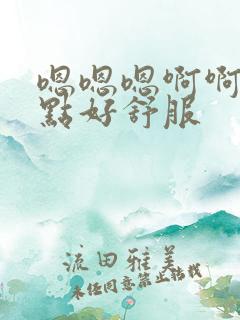 嗯嗯嗯啊啊
點好舒服
流田雅美
未经同意禁止转载